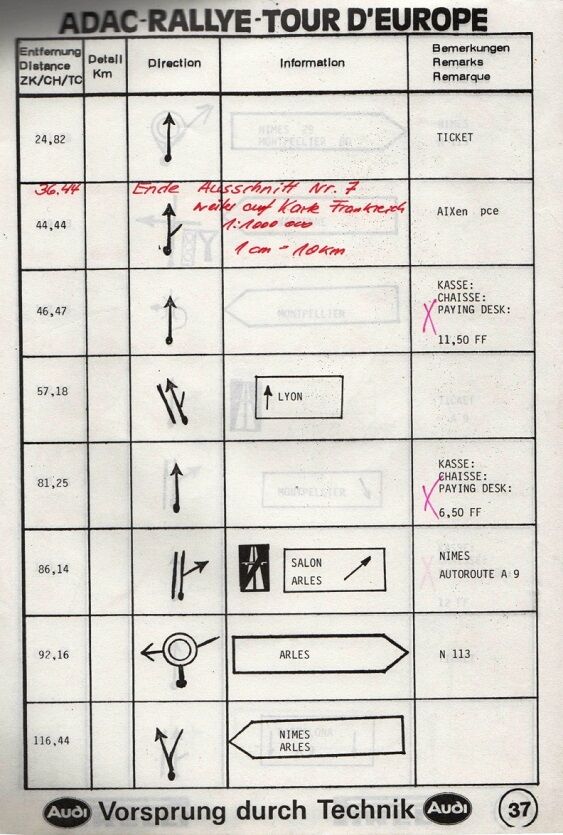 ADAC-RALLYE-TOUR D'EUROPE
Entfernung Distance ZK/CH/TC
Detail Km
Direction
Information
Bemerkungen Remarks Remarque
24,82
TICKET
36.44 Ende Ausschnitt Nr. 7
weiter auf Karte Frankreich
1:1000 000
1 cm = 10km
44,44
AIXen pce
46,47
KASSE:
CHAISSE:
PAYING DESK:
11,50 FF
57,18
LYON
81,25
KASSE:
CHAISSE:
PAYING DESK:
6,50 FF
86,14
SALON
ARLES
NIMES
AUTOROUTE A 9
92,16
ARLES
N 113
116,44
NIMES
ARLES
Audi Vorsprung durch Technik Audi 37